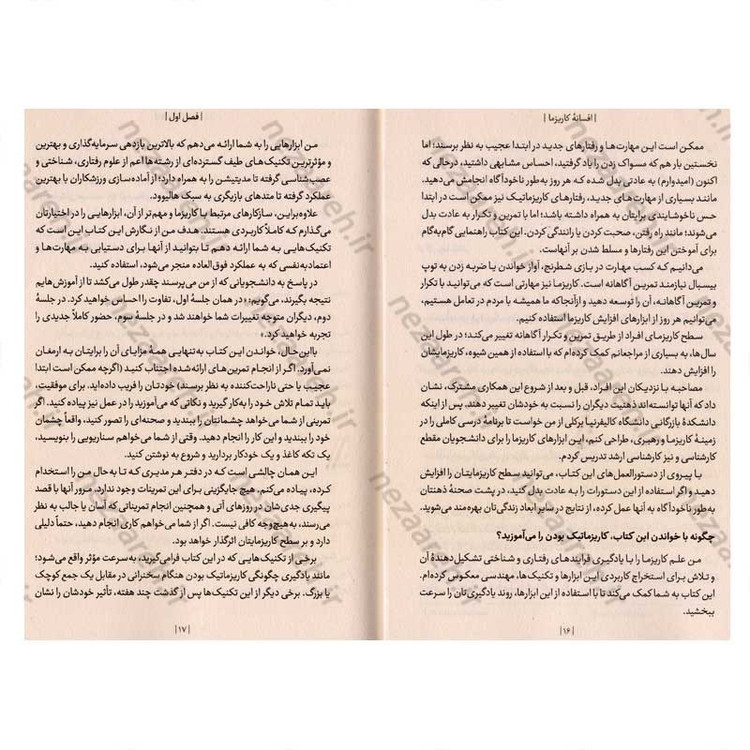 | افسانهٔ کاریزما |
ممکن است این مهارت‌ها و رفتارهای جدید در ابتدا عجیب به نظر برسند؛ اما
نخستین بار هم که مسواک زدن را یاد گرفتید، احساس مشابهی داشتید، درحالی که
اکنون (امیدوارم) به عادتی بدل شده که هر روز به‌طور ناخودآگاه انجامش می‌دهید.
مانند بسیاری از مهارت‌های جدید، رفتارهای کاریزماتیک نیز ممکن است در ابتدا
حس ناخوشایندی برایتان به همراه داشته باشد؛ اما با تمرین و تکرار به عادت بدل
می‌شوند؛ مانند راه رفتن، صحبت کردن یا رانندگی کردن. این کتاب راهنمایی گام‌به‌گام
برای آموختن این رفتارها و مسلط شدن بر آنهاست.
می‌دانیم که کسب مهارت در بازی شطرنج، آواز خواندن یا ضربه زدن به توپ
بیسبال نیازمند تمرین آگاهانه است. کاریزما نیز مهارتی است که می‌توانید با تکرار
و تمرین آگاهانه، آن را توسعه دهید و ازآنجاکه ما همیشه با مردم در تعامل هستیم،
می‌توانیم هر روز از ابزارهای افزایش کاریزما استفاده کنیم.
سطح کاریزمای افراد از طریق تمرین و تکرار آگاهانه تغییر می‌کند؛ در طول این
سال‌ها، به بسیاری از مراجعانم کمک کرده‌ام که با استفاده از همین شیوه، کاریزمایشان
را افزایش دهند.
مصاحبه با نزدیکان این افراد، قبل و بعد از شروع این همکاری مشترک، نشان
داد که آنها توانسته‌اند ذهنیت دیگران را نسبت به خودشان تغییر دهند. پس از اینکه
دانشکدهٔ بازرگانی دانشگاه کالیفرنیا برکلی از من خواست تا برنامهٔ درسی کاملی را در
زمینهٔ کاریزما و رهبری، طراحی کنم، این ابزارهای کاریزما را برای دانشجویان مقطع
کارشناسی و نیز کارشناسی ارشد تدریس کردم.
با پیروی از دستورالعمل‌های این کتاب، می‌توانید سطح کاریزمایتان را افزایش
دهید و اگر استفاده از این دستورات را به عادت بدل کنید، در پشت صحنهٔ ذهنتان
به‌طور ناخودآگاه به آنها عمل کرده، از نتایج در سایر ابعاد زندگی‌تان بهره‌مند می‌شوید.
چگونه با خواندن این کتاب، کاریزماتیک بودن را می‌آموزید؟
من علم کاریزما را با یادگیری فرایندهای رفتاری و شناختی تشکیل‌دهندهٔ آن
و تلاش برای استخراج کاربردی این ابزارها و تکنیک‌ها، مهندسی معکوس کرده‌ام.
این کتاب به شما کمک می‌کند تا با استفاده از این ابزارها، روند یادگیری‌تان را سرعت
ببخشید.
| ۱۶ |
| فصل اول |
من ابزارهایی را به شما ارائه می‌دهم که بالاترین بازدهی سرمایه‌گذاری و بهترین
و مؤثرترین تکنیک‌های طیف گسترده‌ای از رشته‌ها اعم از علوم رفتاری، شناختی و
عصب‌شناسی گرفته تا مدیتیشن را به همراه دارد؛ از آماده‌سازی ورزشکاران با بهترین
عملکرد گرفته تا متدهای بازیگری به سبک هالیوود.
علاوه‌براین، سازکارهای مرتبط با کاریزما و مهم‌تر از آن، ابزارهایی را در اختیارتان
می‌گذارم که کاملاً کاربردی هستند. هدف من از نگارش این کتاب این است که
تکنیک‌هایی به شما ارائه دهم تا بتوانید از آنها برای دستیابی به مهارت‌ها و
اعتمادبه‌نفسی که به عملکرد فوق‌العاده منجر می‌شود، استفاده کنید.
در پاسخ به دانشجویانی که از من می‌پرسند چقدر طول می‌کشد تا از آموزش‌هایم
نتیجه بگیرند، می‌گویم: «در همان جلسهٔ اول، تفاوت را احساس خواهید کرد. در جلسهٔ
دوم، دیگران متوجه تغییرات شما خواهند شد و در جلسهٔ سوم، حضور کاملاً جدیدی را
تجربه خواهید کرد.»
بااین‌حال، خواندن این کتاب به‌تنهایی همهٔ مزایای آن را برایتان به ارمغان
نمی‌آورد. اگر از انجام تمرین‌های ارائه‌شده اجتناب کنید (اگرچه ممکن است ابتدا
عجیب یا حتی ناراحت‌کننده به نظر برسند) خودتان را فریب داده‌اید. برای موفقیت،
باید تمام تلاش خود را به‌کار گیرید و نکاتی که می‌آموزید را در عمل نیز پیاده کنید. اگر
تمرینی از شما می‌خواهد چشمانتان را ببندید و صحنه‌ای را تصور کنید، واقعاً چشمان
خود را ببندید و این کار را انجام دهید. وقتی از شما می‌خواهم سناریویی را بنویسید،
یک تکه کاغذ و یک خودکار بردارید و شروع به نوشتن کنید.
این همان چالشی است که در دفتر هر مدیری که تا به‌حال من را استخدام
کرده، پیاده می‌کنم. هیچ جایگزینی برای این تمرینات وجود ندارد. مرور آنها با قصد
پیگیری جدی‌شان در روزهای آتی و همچنین انجام تمریناتی که آسان یا جالب به نظر
می‌رسند، به‌هیچ‌وجه کافی نیست. اگر از شما می‌خواهم کاری انجام دهید، حتماً دلیلی
دارد و بر سطح کاریزمایتان اثرگذار خواهد بود.
برخی از تکنیک‌هایی که در این کتاب فرامی‌گیرید، به‌سرعت مؤثر واقع می‌شود؛
مانند یادگیری چگونگی کاریزماتیک بودن هنگام سخنرانی در مقابل یک جمع کوچک
یا بزرگ. برخی دیگر از این تکنیک‌ها پس از گذشت چند هفته، تأثیر خودشان را نشان
| ۱۷ |
nezaareh.ir